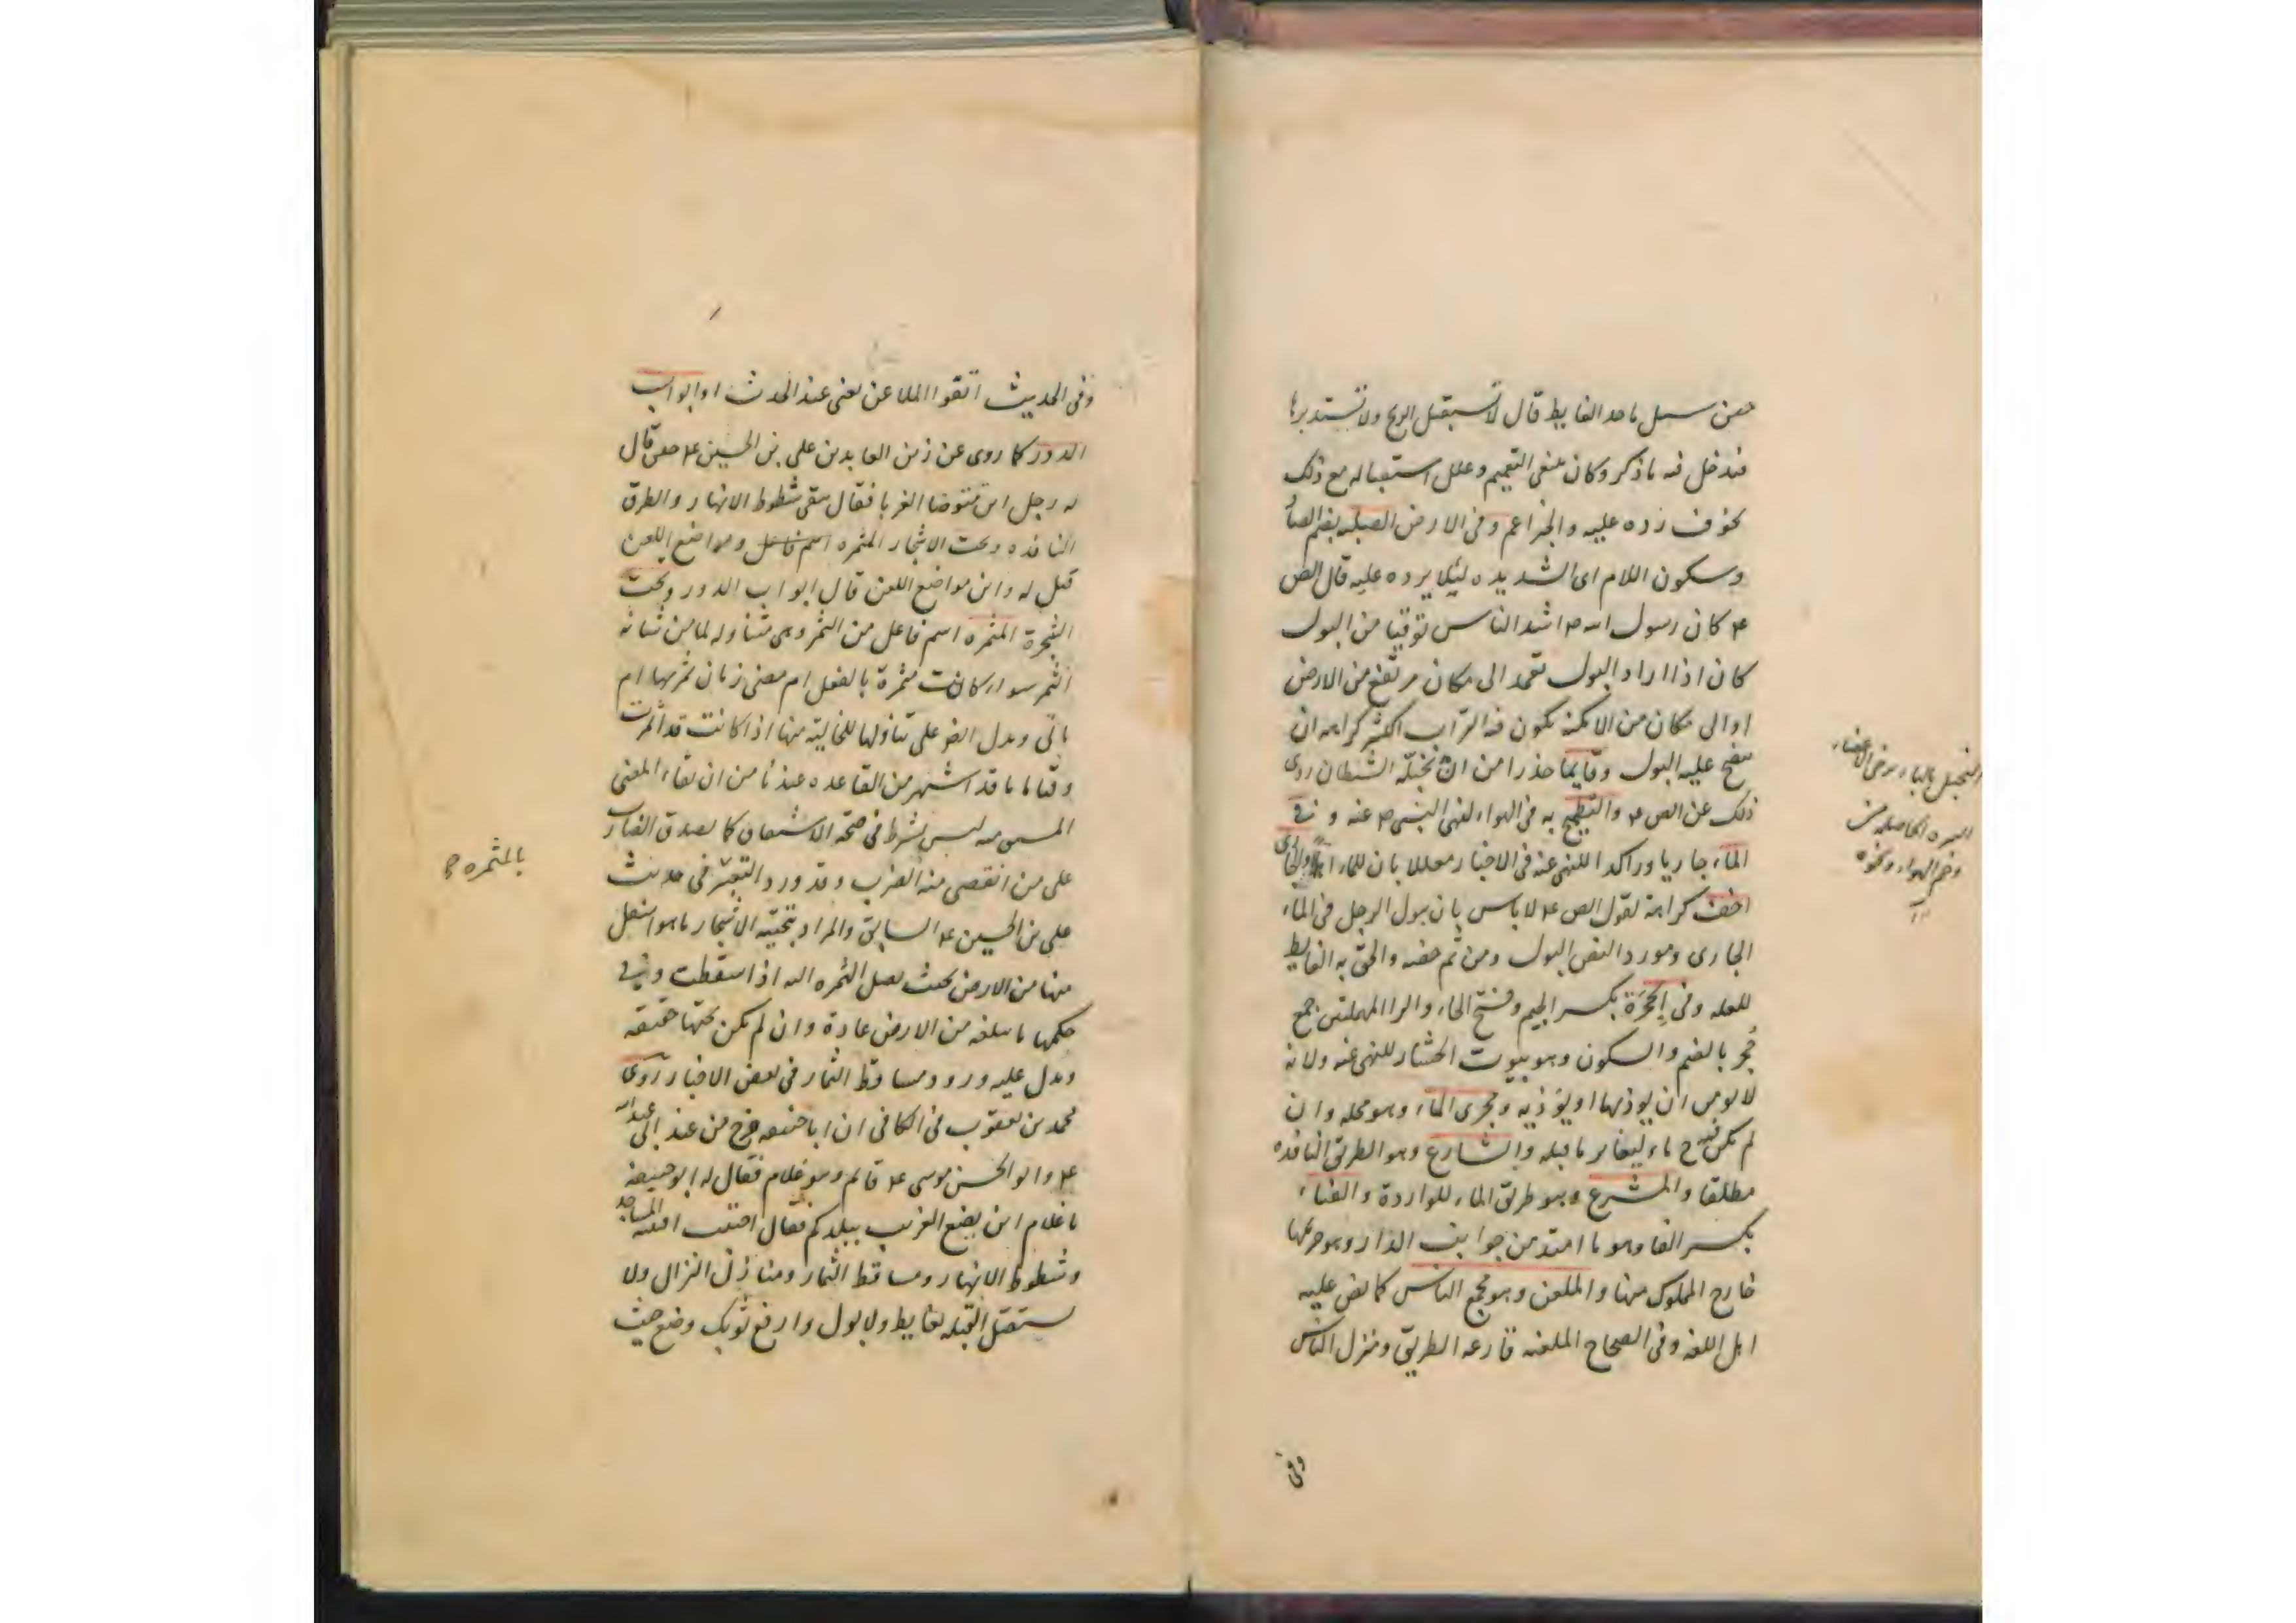 حين سئل ما حد الغايط قال لا تستقبل الريح ولا تستدبرها
فيدخل فيه ما ذكر وكان ينبغي التعميم وعلل استقباله مع ذلك
بخوف رده عليه والخبر اعم وفي الارض الصلبه بضم الصاد
وسكون اللام اى الشديده ليلا يرده عليه قال الص
ع كان رسول الله ص اشد الناس توقيا من البول
كان اذا اراد البول تعمد الى مكان مرتفع من الارض
او الى مكان من الامكنه يكون فيه التراب الكثير كراهه ان
ينضح عليه البول وقايما حذرا من ان يخبله الشيطان روى
ذلك عن الص ع والتطميح به في الهواء لنهى النبي ص عنه وفي
الماء جاريا وراكدا للنهى عنه في الاخبار معللا بان للماء اهلا والجارى
اخف كراهة لقول الص ع لا باس بان يبول الرجل في الماء
الجارى ومورد النص البول ومن ثم خصه والحق به الغايط
للعله وفي الجحرة بكسر الجيم وفتح الحاء والرا المهملتين جمع
جحر بالضم والسكون وهو بيوت الحشار للنهى عنه ولانه
لا يومن ان يوذيها او يؤذيه ومجرى الماء وهو محله وان
لم يكن فيه ح ماء ليغاير ما قبله والشارع وهو الطريق النافذه
مطلقا والمشرع وهو طريق الماء للواردة والفناء
بكسر الفا وهو ما امتد من جوانب الدار وهو حريمها
خارج المملوك منها والملعن وهو مجمع الناس كما نص عليه
اهل اللغه وفي الصحاح الملعنه قارعه الطريق ومنزل الناس
التخبيل بالباء مرض الاعضاء
وضم الهواء ونحوه
وفي
وفي الحديث اتقوا الملاعن يعنى عند الحدث او ابواب
الدور كما روى عن زين العابدين على بن الحسين ع حين قال
له رجل اين يتوضا الغربا فقال يتقى شطوط الانهار والطرق
النافذه وتحت الاشجار المثمره اسم فاعل ومواضع اللعن
قيل له واين مواضع اللعن قال ابواب الدور وتحت
الشجرة المثمره اسم فاعل من الثمر وهى متناوله لما من شانه
الثمر سواء كانت مثمرة بالفعل ام مضى زمان ثمرها ام
ياتى ويدل النص على تناولها للخالية منها اذا كانت قد اثمرت
وقتا ما ما قد اشتهر من القاعده عندنا من ان بقاء المعنى
المشتق منه ليس بشرط في صحة الاشتقاق كما يصدق الضارب
على من انقضى منه الضرب وقد ورد التعبير في حديث
على بن الحسين ع السابق والمراد بتحتية الاشجار ما هو اسفل
منها من الارض بحيث يصل الثمره اليه اذا سقطت وفي
حكمها ما يبلغه من الارض عادة وان لم يكن تحتها حقيقه
ويدل عليه ورود مساقط الثمار في بعض الاخبار روى
محمد بن يعقوب في الكافى ان ابا حنيفه خرج من عند ابى عبد الله
ع وابو الحسن موسى ع قائم وهو غلام فقال له ابو حنيفه
يا غلام اين يضع الغريب ببلدكم فقال اجتنب افنيه المساجد
وشطوط الانهار ومساقط الثمار ومنازل النزال ولا
تستقبل القبله بغايط ولا بول وارفع ثوبك وضع حيث
بالمثمره